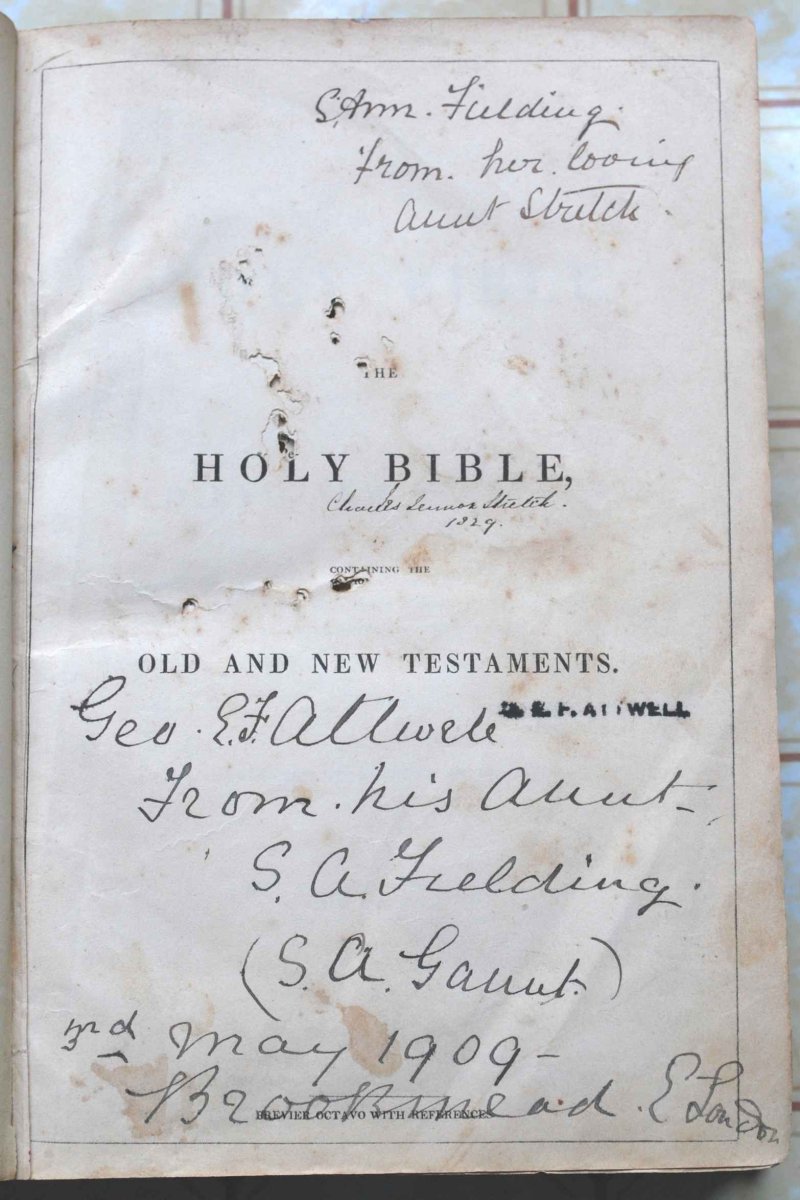 S. Ann. Fielding.
From. her. loving
Aunt Stretch.
THE
HOLY BIBLE,
Charles Lennox Stretch.
1829.
CONTAINING THE
OLD AND NEW TESTAMENTS.
Geo. E.F. Attwell
E.F. ATTWELL
From. his Aunt
S. A. Fielding.
(S. A. Gaunt.)
3rd May 1909-
Brookmead. E London
BREVIER OCTAVO WITH REFERENCES.